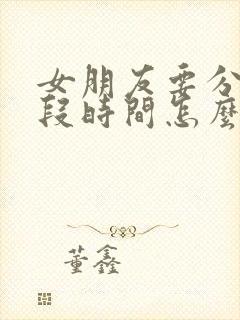 女朋友要分
段時間怎麼
董鑫